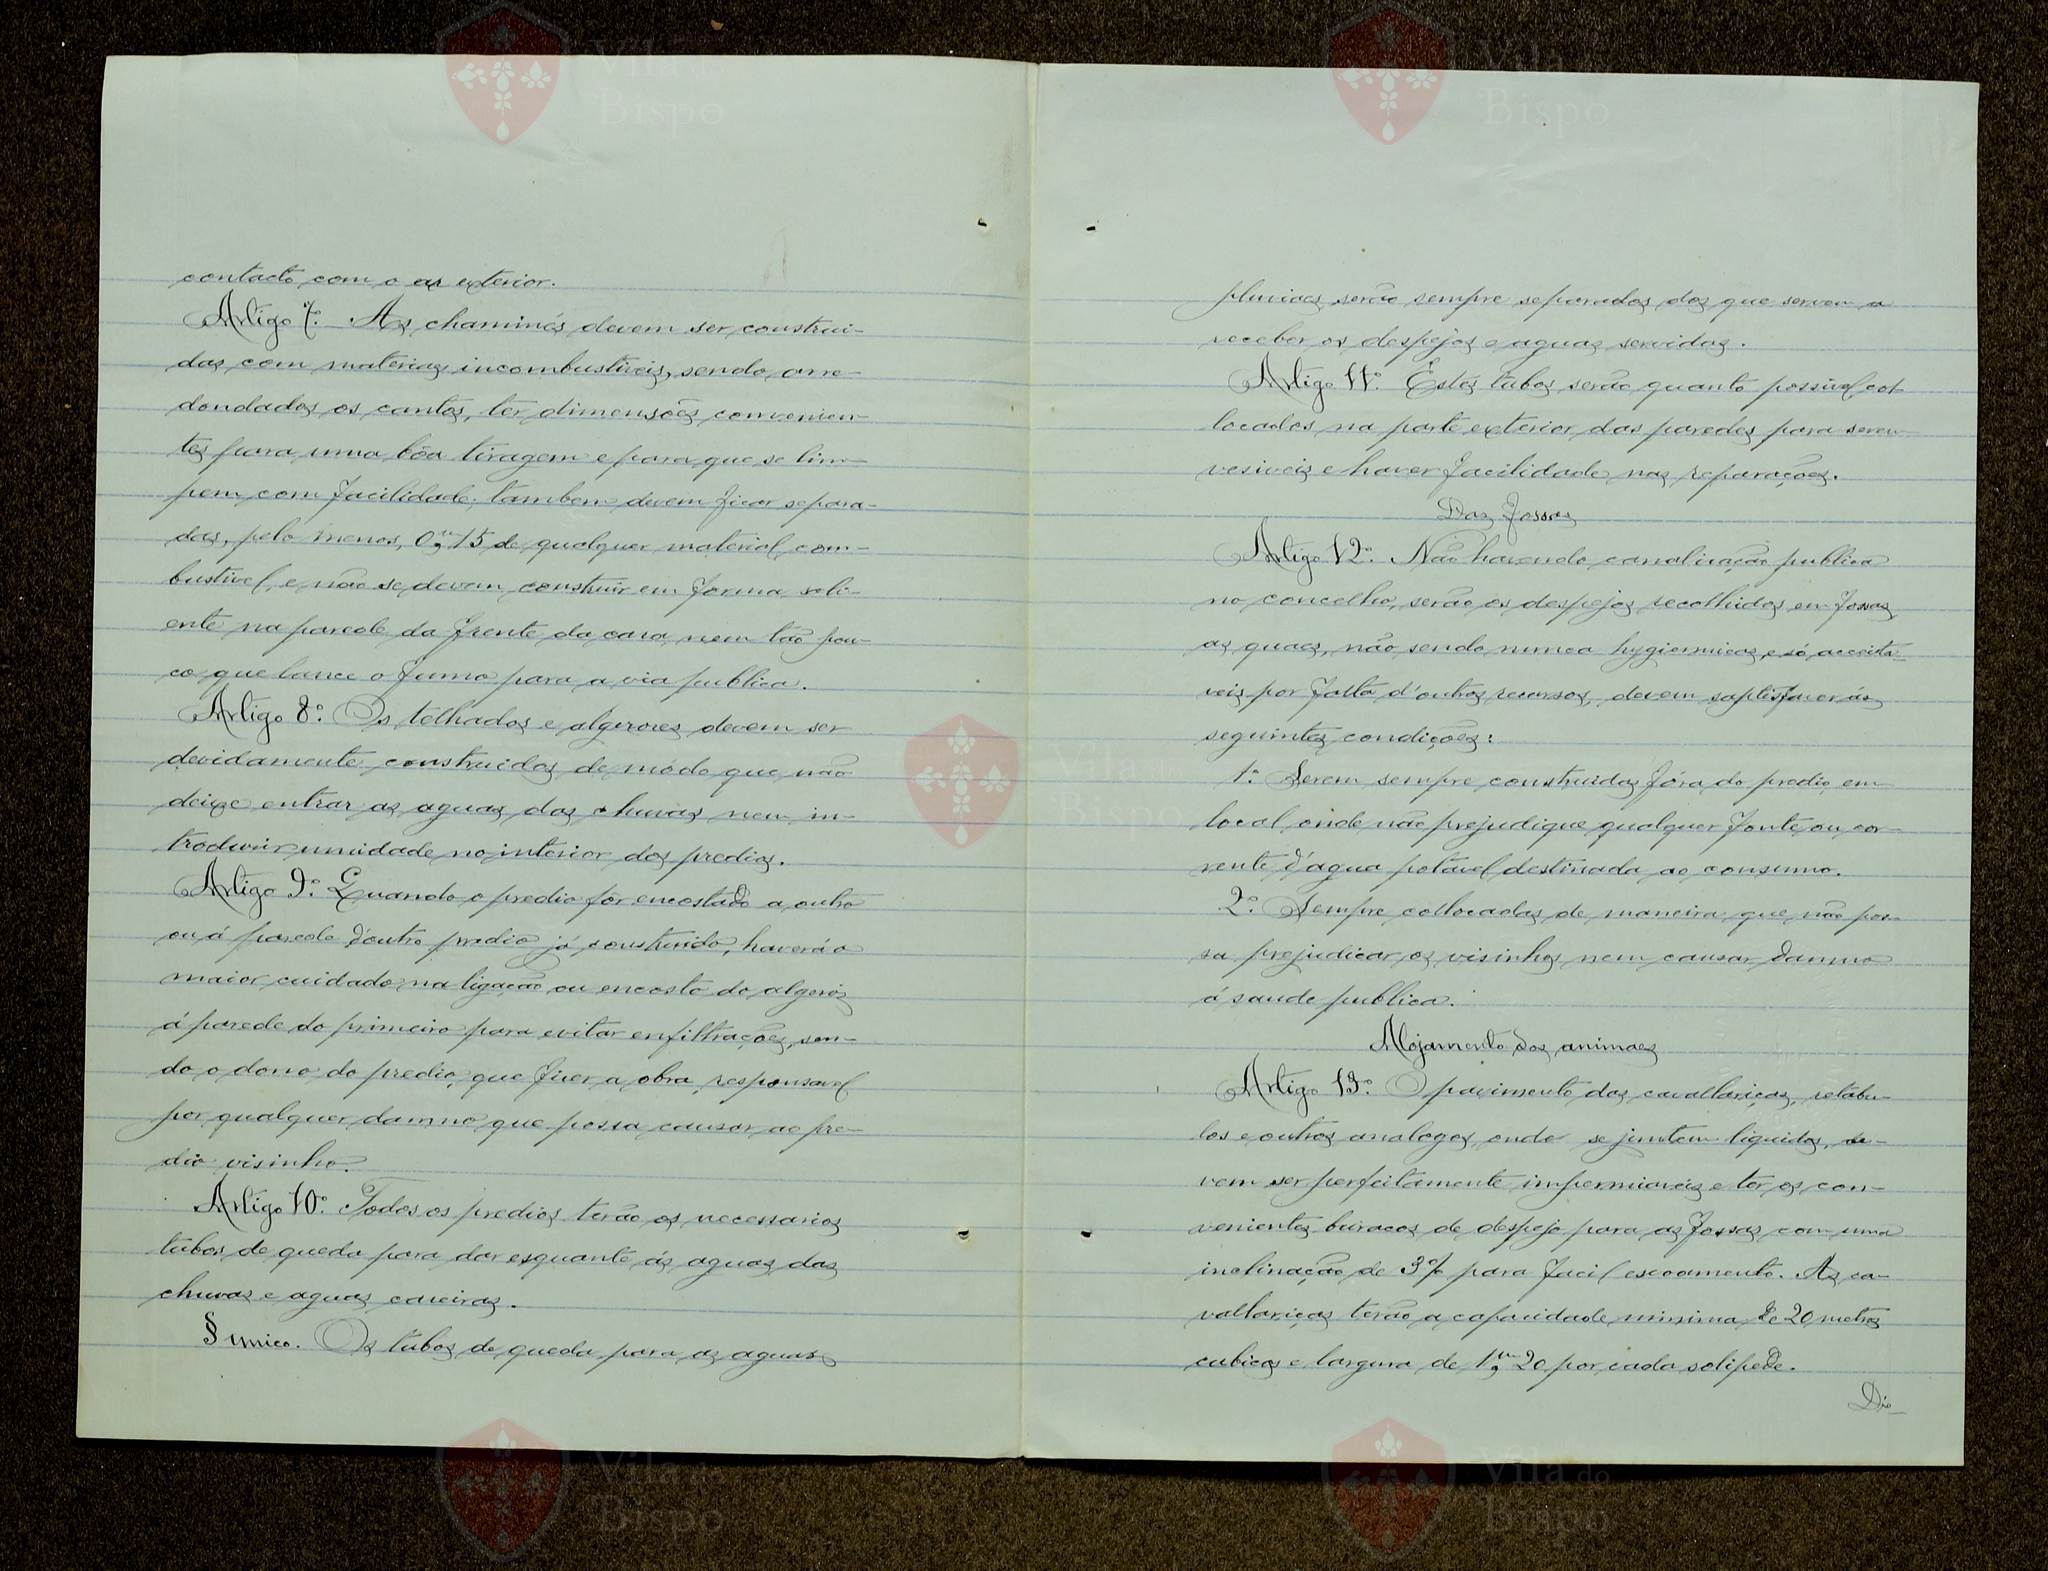 contacto com o ar exterior.
Artigo 7º. As chaminés devem ser construi-
das com materiaes incombustiveis, sendo arre-
dondados os cantos, ter dimensões convenien-
tes para uma bôa tiragem e para que se lim-
pem com facilidade; tambem devem ficar separa-
das, pelo menos, 0,m15 de qualquer material com-
bustivel, e não se devem construir em forma sali-
ente na parede da frente da casa, nem tão pou-
co que lance o fumo para a via publica.
Artigo 8º. Os telhados e algerozes devem ser
devidamente construidos de módo que não
deixe entrar as aguas das chuvas nem in-
troduzir umidade no interior dos predios.
Artigo 9º. Quando o predio fôr encostado a outro
ou á parede d'outro predio já construido, haverá o
maior cuidado na ligação ou encosto do algeroz
á parede do primeiro para evitar enfiltrações, sen-
do o dono do predio, que fizer a obra, responsavel
por qualquer damno que possa causar ao pre-
dio visinho.
Artigo 10º. Todos os predios terão os necessarios
tubos de queda para dar esquante ás aguas das
chuvas e aguas caseiras.
§ unico. Os tubos de queda para as aguas
pluviaes serão sempre separados dos que servem a
receber os despejos e aguas servidas.
Artigo 11º. Estes tubos serão quanto possivel col-
locados na parte exterior das paredes para serem
vesiveis e haver facilidade nas reparações.
Das fossas
Artigo 12º. Não havendo canalização publica
no concelho, serão os despejos recolhidos em fossas,
as quaes, não sendo nunca hygiennicas, e só acceita-
veis por falta d'outros recursos, devem saptisfazer ás
seguintes condições:
1º. Serem sempre construidas fóra do predio em
local onde não prejudique qualquer fonte ou cor-
rente d'agua potável destinada ao consumo.
2º. Sempre collocadas de maneira que não pos-
sa prejudicar os visinhos nem causar damno
á saude publica.
Alojamento dos animaes
Artigo 13º. O pavimento das cavallariças, estabu-
los e outros analogos, onde se juntem liquidos, de-
vem ser perfeitamente impermiaveis e ter os con-
venientes buracos de despejo para as fossas com uma
inclinação de 3% para facil escoamento. As ca-
vallariças terão a capacidade minima de 20 metros
cubicos e largura de 1,m20 por cada solipede.
Dis-
Vila do
Bispo
Vila do
Bispo
Vila do
Bispo
Vila do
Bispo
Vila do
Bispo